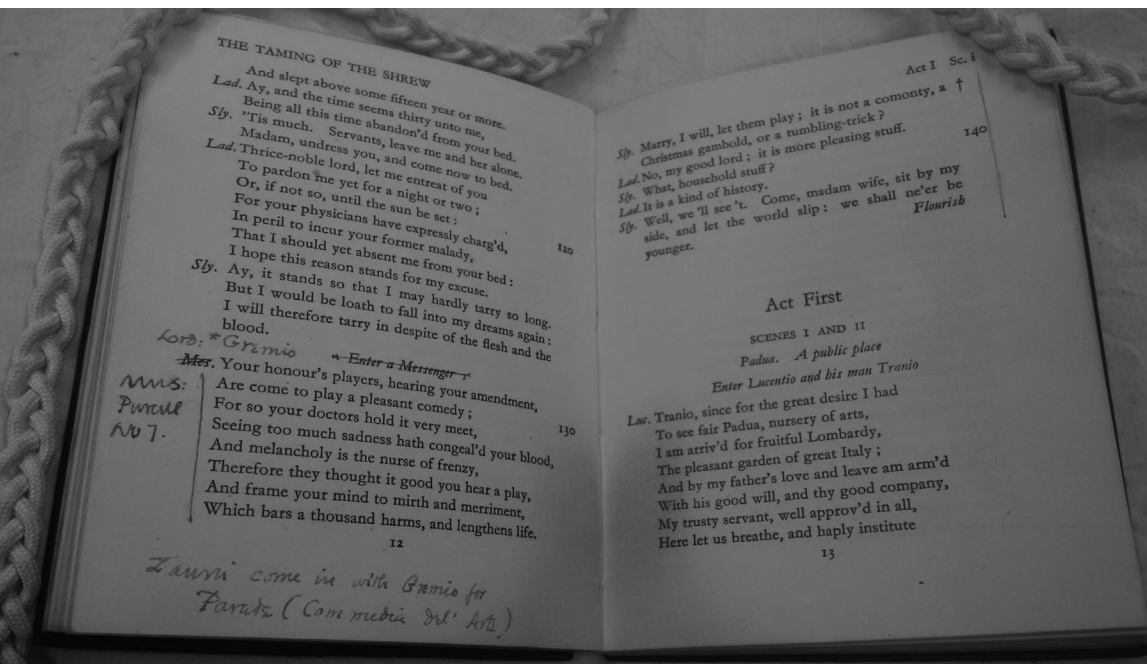 THE TAMING OF THE SHREW
And slept above some fifteen year or more.
Lad. Ay, and the time seems thirty unto me,
Being all this time abandon'd from your bed.
Sly. 'Tis much. Servants, leave me and her alone.
Madam, undress you, and come now to bed.
Lad. Thrice-noble lord, let me entreat of you
To pardon me yet for a night or two;
Or, if not so, until the sun be set:
For your physicians have expressly charg'd,
In peril to incur your former malady, 120
That I should yet absent me from your bed:
I hope this reason stands for my excuse.
Sly. Ay, it stands so that I may hardly tarry so long.
But I would be loath to fall into my dreams again:
I will therefore tarry in despite of the flesh and the
blood.
Lord: * Gremio
Enter a Messenger
Mes. Your honour's players, hearing your amendment,
Are come to play a pleasant comedy;
For so your doctors hold it very meet,
Seeing too much sadness hath congeal'd your blood, 130
And melancholy is the nurse of frenzy,
Therefore they thought it good you hear a play,
And frame your mind to mirth and merriment,
Which bars a thousand harms, and lengthens life.
Mus:
No 7.
12
Zanni come in with Gremio for
Parade (Commedia del' Arte)
Act I Sc. i
Sly. Marry, I will, let them play; it is not a comonty, a †
Christmas gambold, or a tumbling-trick?
Lad. No, my good lord; it is more pleasing stuff. 140
Sly. What, household stuff?
Lad. It is a kind of history.
Sly. Well, we'll see't. Come, madam wife, sit by my
side, and let the world slip: we shall ne'er be
younger.
Flourish
Act First
SCENES I AND II
Padua. A public place
Enter Lucentio and his man Tranio
Luc. Tranio, since for the great desire I had
To see fair Padua, nursery of arts,
I am arriv'd for fruitful Lombardy,
The pleasant garden of great Italy;
And by my father's love and leave am arm'd
With his good will, and thy good company,
My trusty servant, well approv'd in all,
Here let us breathe, and haply institute
13